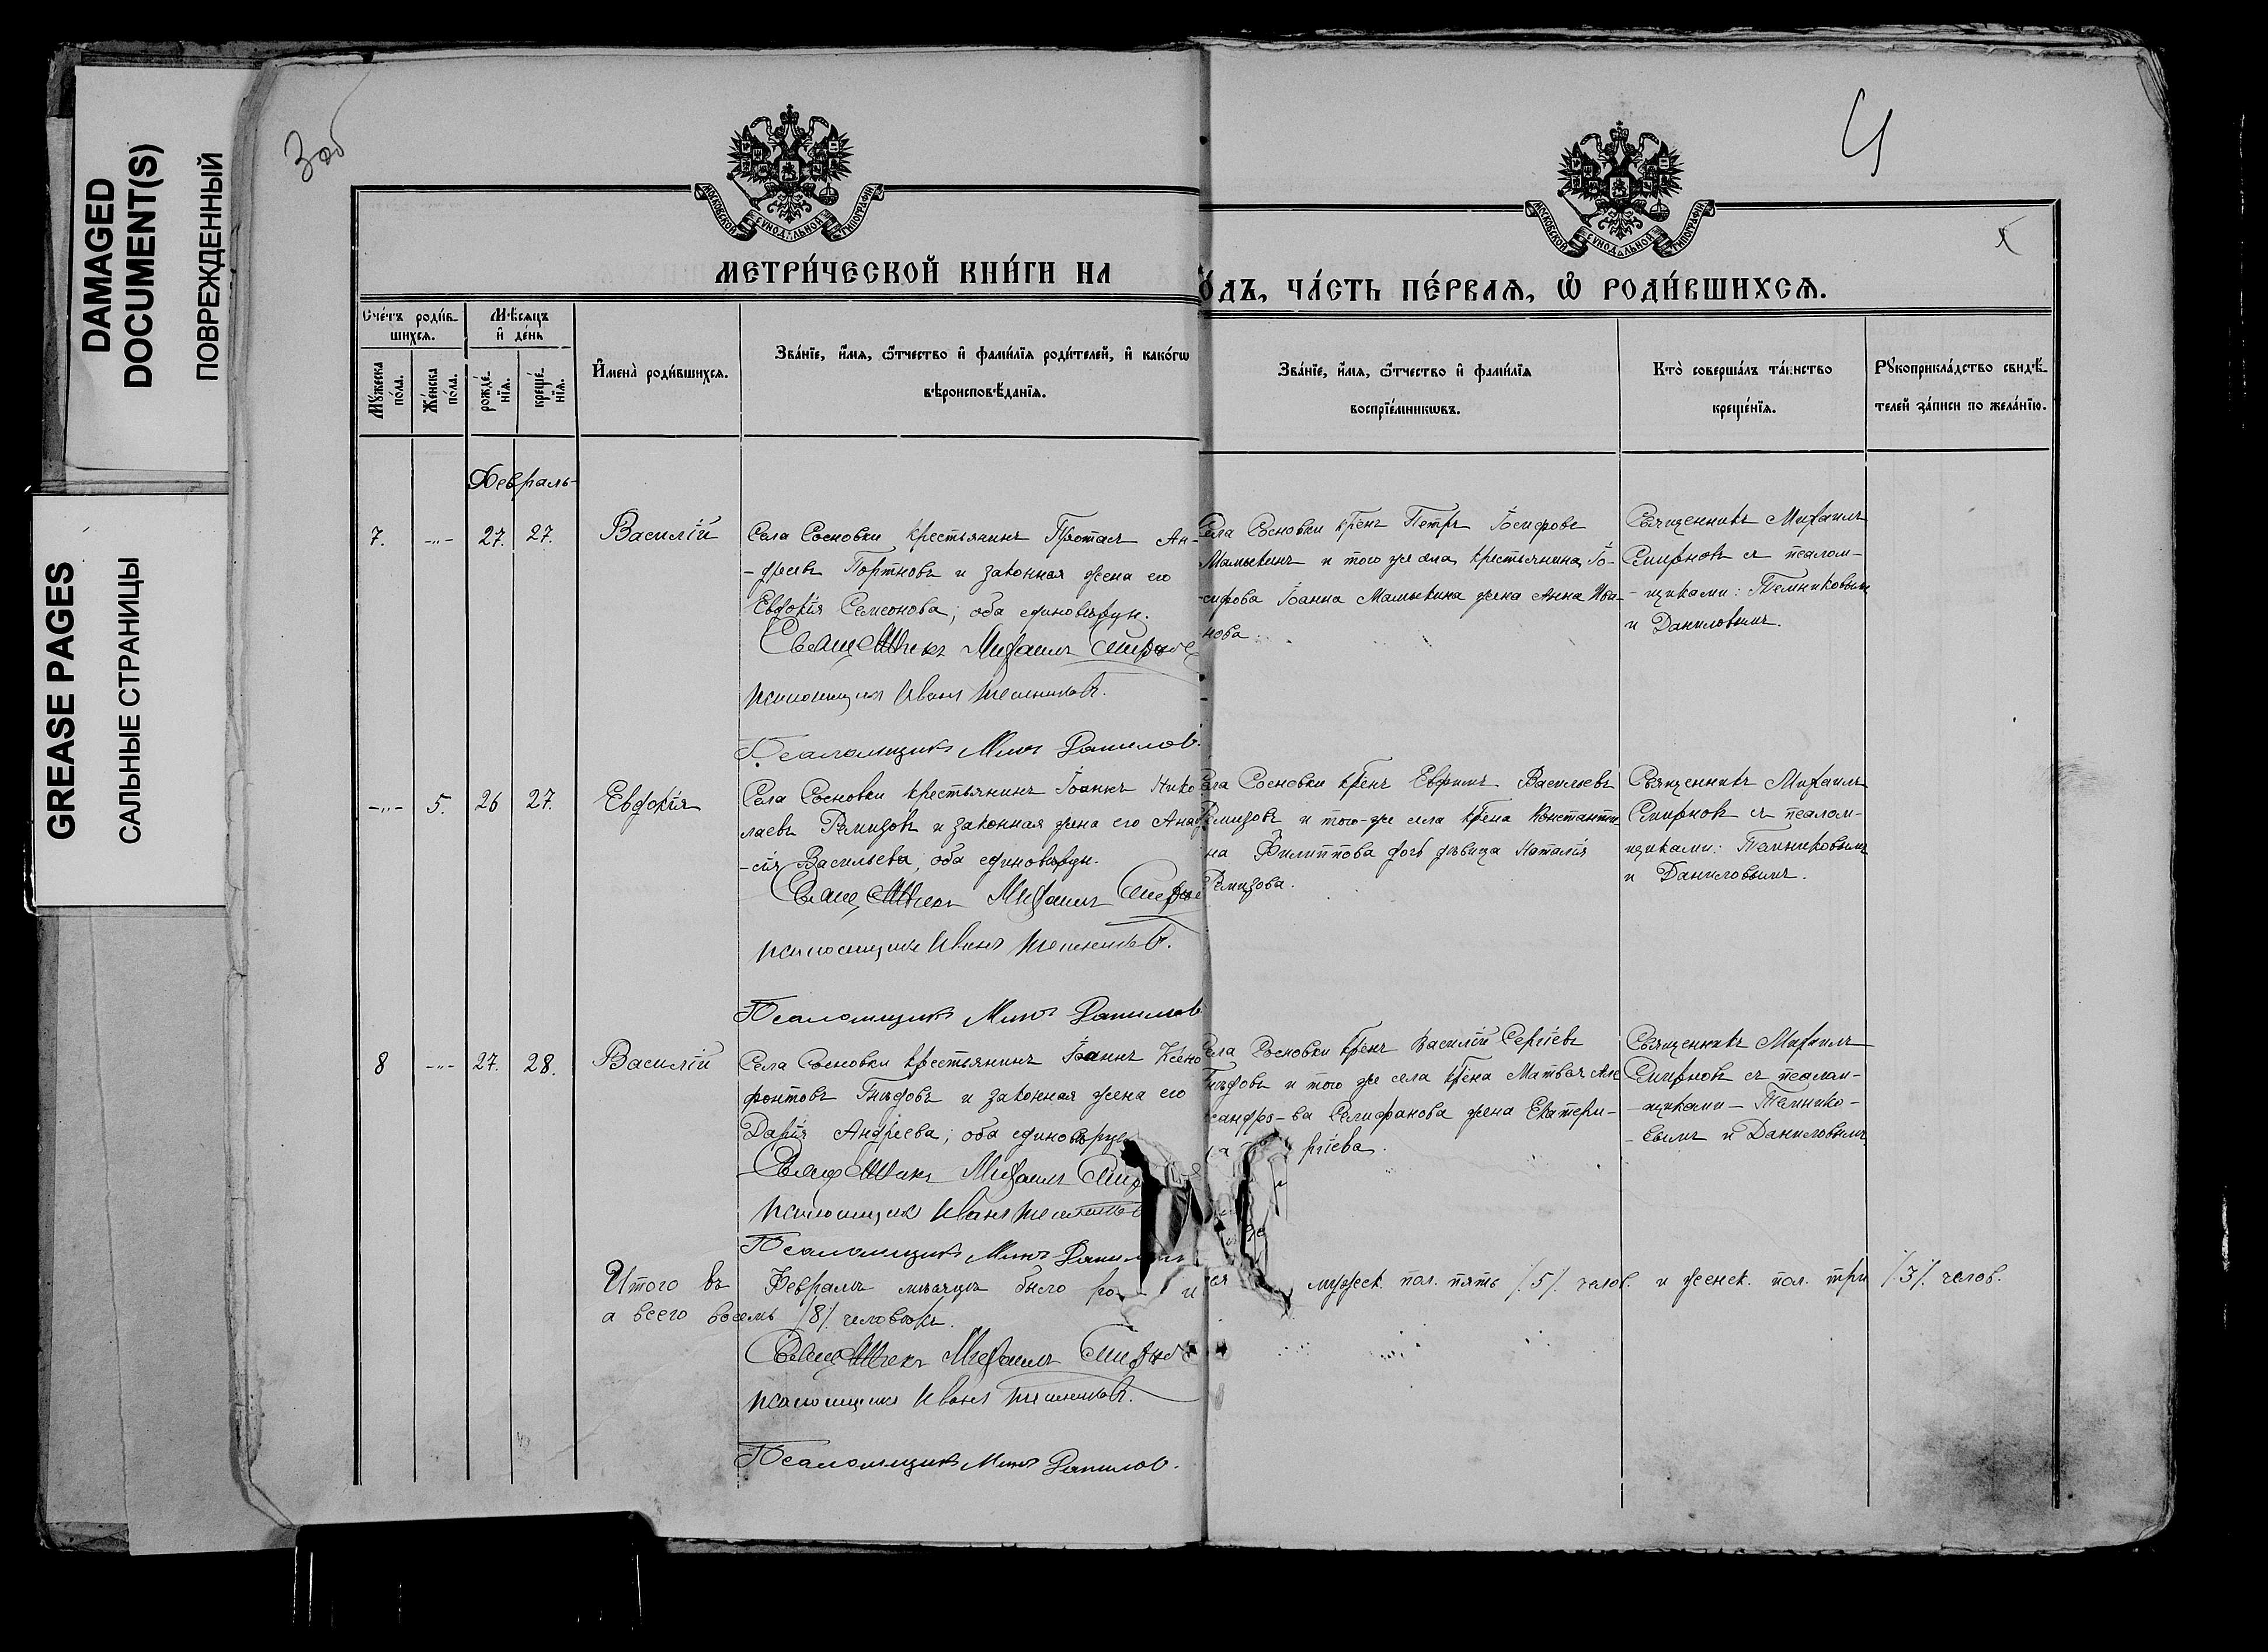 DAMAGED
DOCUMENT(S)
ПОВРЕЖДЕННЫЙ
GREASE PAGES
САЛЬНЫЕ СТРАНИЦЫ
Зоб
4
МОСКОВСКОЙ СѴНОДАЛЬНОЙ ТИПОГРАФІИ
МОСКОВСКОЙ СѴНОДАЛЬНОЙ ТИПОГРАФІИ
МЕТРИ́ЧЕСКОЙ КНИ́ГИ НА
О́ДЪ, ЧА́СТЬ ПЕ́РВАЯ, Ѽ РОДИ́ВШИХСЯ.
Сче́тъ роди́в-
шихся.
Мѣ́сяцъ
и҆ де́нь
Мꙋ́жеска по́ла.
Же́нска по́ла.
рожде́-нїя.
креще́-нїя.
И҆мена̀ роди́вшихся.
Зва́нїе, и҆́мя, ѻ҆́тчество и҆ фами́лїя роди́телей, и҆ како́гѡ
вѣроисповѣ́данїя.
Зва́нїе, и҆́мя, ѻ҆́тчество и҆ фами́лїя
воспрїе́мникѡвъ.
Кто̀ соверша́лъ та́инство
креще́нїя.
Рꙋкоприкла́дство свидѣ́-
телей за́писи по жела́нїю.
Февраль
7. -"- 27. 27. Василій
Села Сосновки крестьянинъ Протасъ Ан-
-дреевъ Портновъ и законная жена его
Евдокія Самсонова; оба единовѣрцы.
Священникъ Михаилъ Смирнов
псаломщикъ Иванъ Темниковъ.
Псаломщикъ Минъ Данилов.
Села Сосновки крᲂенъ Петръ Іосифовъ
Мамыкинъ и того же села крестьянина Іо-
-сифова Іоанна Мамыкина жена Анна Ива-
нова.
Священникъ Михаилъ
Смирновъ съ псалом-
-щиками: Темниковымъ
и Даниловымъ.
-"- 5. 26 27. Евдокія
Села Сосновки крестьянинъ Іоаннъ Нико
лаевъ Ремизовъ и законная жена его Анаст
-сія Васильева; оба единовѣрцы.
Священникъ Михаилъ Смирнов
псаломщикъ Иванъ Темниковъ.
Псаломщикъ Минъ Данилов
Села Сосновки крᲂенъ Евфимъ Васильевъ
Ремизовъ и того-же села крᲂена Константи-
на Филиппова дочь дѣвица Наталія
Ремизова.
Священникъ Михаилъ
Смирновъ съ псалом-
щиками: Темниковымъ
и Даниловымъ.
8 -"- 27. 28. Василій
Села Сосновки крестьянинъ Іоаннъ Ксено
фонтовъ Гнѣдовъ и законная жена его
Дарія Андреева; оба единовѣрцы
Священникъ Михаилъ Смир
псаломщикъ Иванъ Темников
Псаломщикъ Минъ Данилов
Села Сосновки крᲂенъ Василій Сергіевъ
Гнѣдовъ и того же села крᲂена Матвѣя Але
ксандро-ва Селифанова жена Екатери-
на ргіева.
Священникъ Михаилъ
Смирновъ съ псалом-
-щиками - Темнико-
-вымъ и Даниловымъ
Итого въ Февралѣ мѣсяцѣ было ро ся мужеск. пол. пять /5/ челов. и женск. пол. три /3/ челов.
а всего восемь /8/ человѣкъ.
Священникъ Михаилъ Смирнов
псаломщикъ Иванъ Темниковъ.
Псаломщикъ Минъ Данилов.